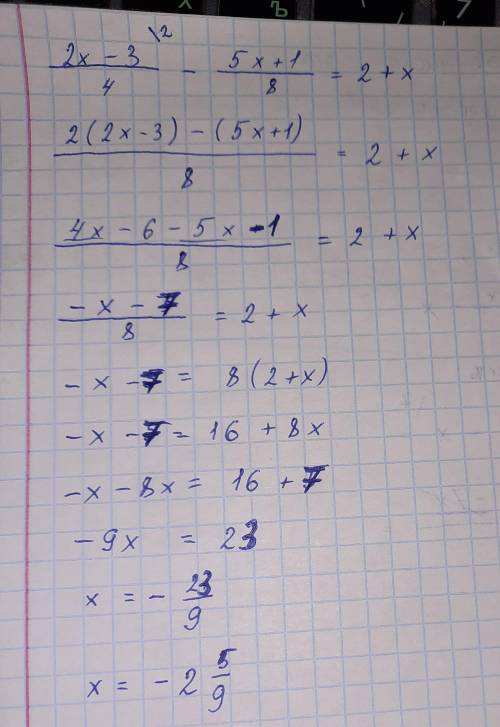 \2
(2x - 3)/4 - (5x + 1)/8 = 2 + x
(2(2x - 3) - (5x + 1))/8 = 2 + x
(4x - 6 - 5x - 1)/8 = 2 + x
(-x - 7)/8 = 2 + x
-x - 7 = 8(2 + x)
-x - 7 = 16 + 8x
-x - 8x = 16 + 7
-9x = 23
x = - 23/9
x = - 2 5/9